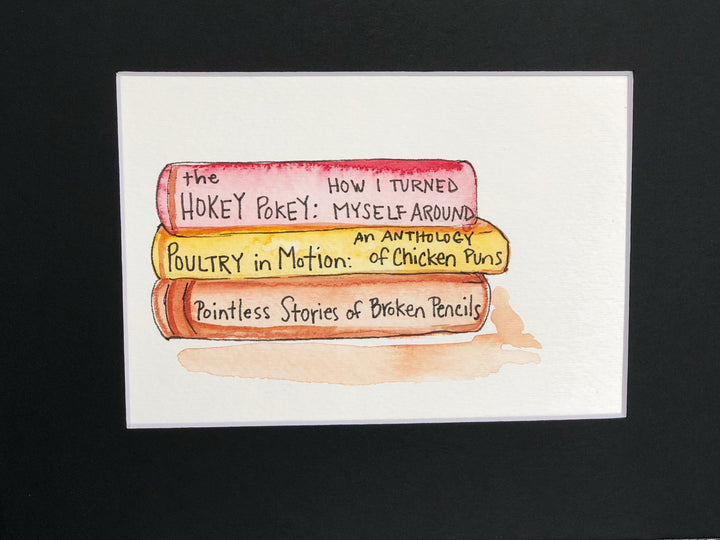 the HOW I TURNED
HOKEY POKEY: MYSELF AROUND
AN ANTHOLOGY
POULTRY in Motion: of Chicken Puns
Pointless Stories of Broken Pencils